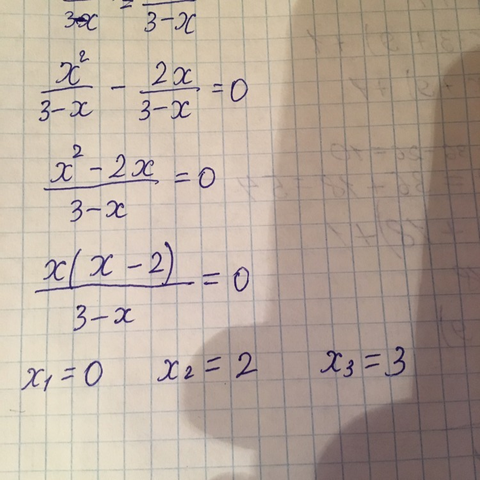 3-x = 3-x
x²/(3-x) - 2x/(3-x) = 0
(x² - 2x)/(3-x) = 0
x(x-2)/(3-x) = 0
x₁ = 0 x₂ = 2 x₃ = 3